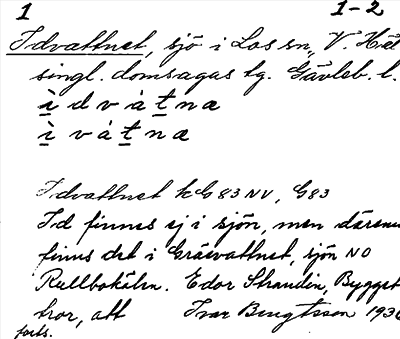 1 1-2
Idvattnet, sjö i Los sn, V. Häl
singl. domsagas tg. Gävleb. l.
ì d v à t n a
ì v à t n a
Idvattnet kG 83 NV, G83
Id finnes ej i sjön, men däremo
finns det i Gräsvattnet, sjön NO
Rullbokåln. Edor Strandin, Bygget
tror, att Ivar Bengtsson 1930
forts.